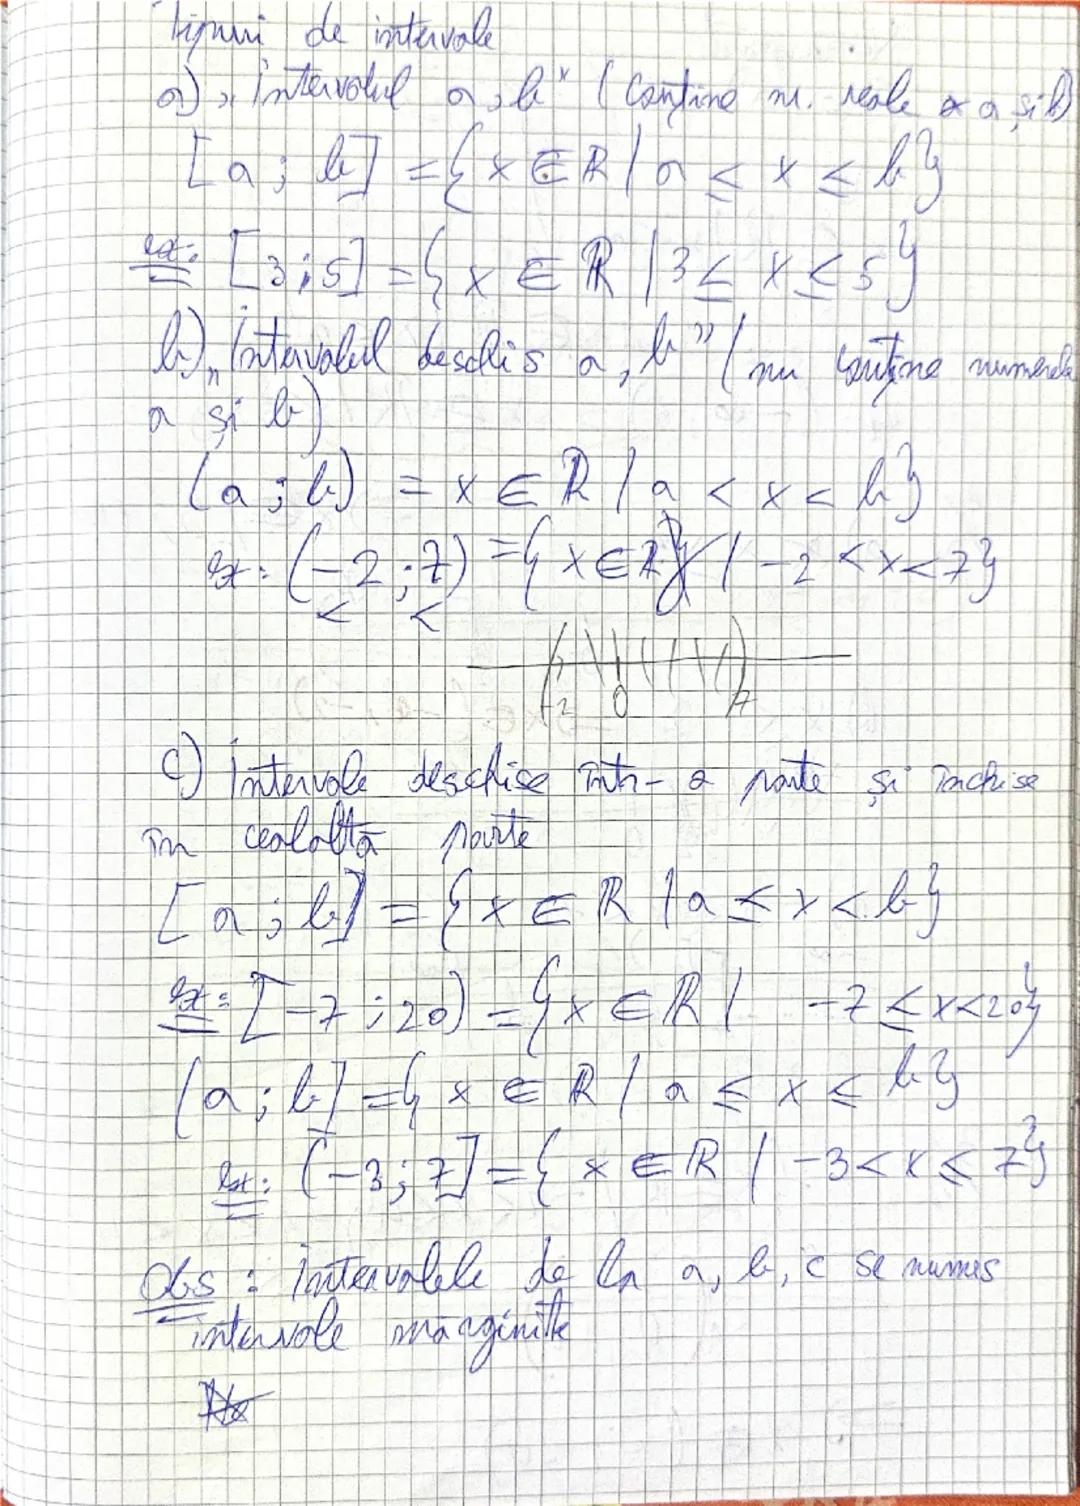 Tipuri de intervale
a) „Intervalul a, b" (Conține nr. reale a și b)
[a ; b] = {x ∈ ℝ / a ≤ x ≤ b}
ex: [3 ; 5] = {x ∈ ℝ / 3 ≤ x ≤ 5}
b) „Intervalul deschis a, b" (nu conține numerele
a și b)
(a ; b) = x ∈ ℝ / a < x < b}
ex: (-2 ; 7) = {x ∈ ℝ / -2 < x < 7}
< <
-2 0 7
c) Intervale deschise într-o parte și închise
în cealaltă parte
[a ; b) = {x ∈ ℝ / a ≤ x < b}
ex: [-7 ; 20) = {x ∈ ℝ / -7 ≤ x < 20}
(a ; b] = {x ∈ ℝ / a ≤ x ≤ b}
ex: (-3 ; 7] = {x ∈ ℝ / -3 < x ≤ 7}
Obs : Intervalele de la a, b, c se numes
intervale mărginite